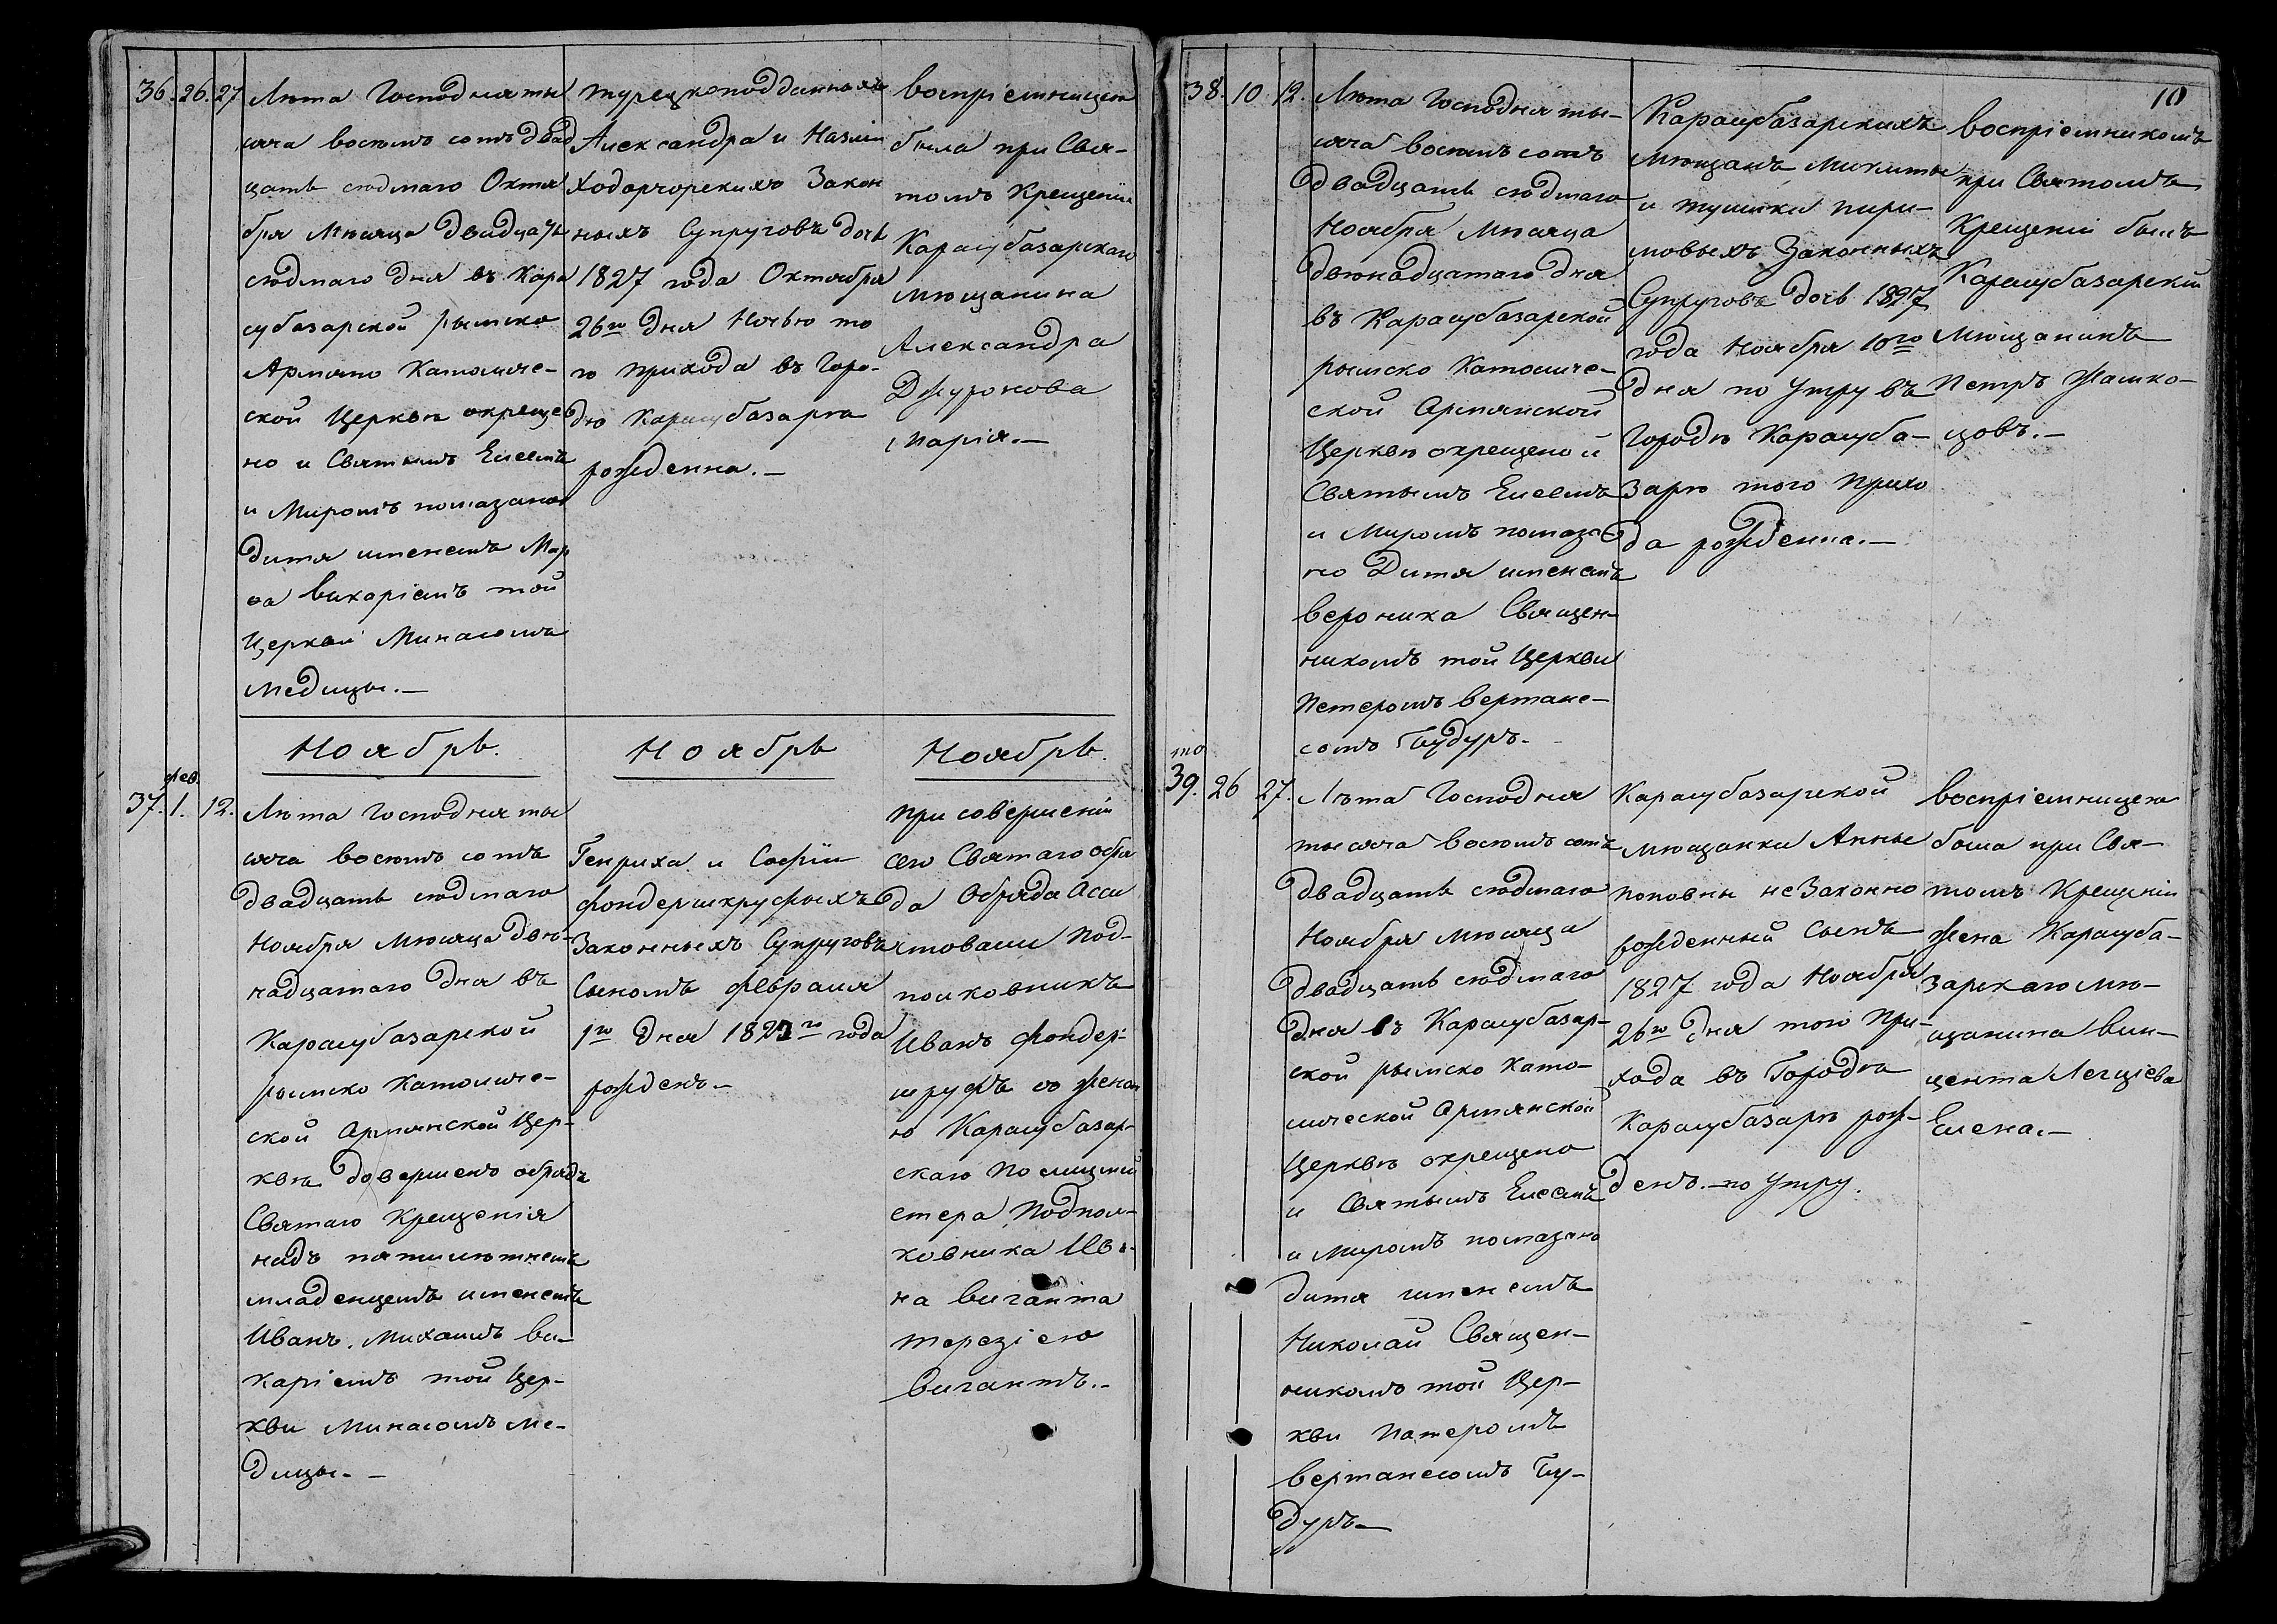 36. 26. 27
Лѣта Господня ты
сяча восемъ сотъ двад
цать седмаго Октя
бря Мѣсяца двадцать
седмаго дня въ Кара
субазарской рымско
Армяно Католиче-
ской Церквѣ окреще
но и Святымъ Елеемъ
и Миромъ помазано
дитя именемъ Мар
ѳа викаріемъ той
Церкви Минасомъ
Медицы.—
турецкоподданныхъ
Александра и Назли
Ходорчорскихъ Закон
ныхъ Супруговъ дочь
1827 года Октября
26го дня Ночью то
го прихода въ Горо-
дѣ Карасубазарѣ
рожденна.—
воспріемницею
была при Свя-
томъ Крещеніи
Карасубазарскаго
мѣщанина
Александра
Джуронова
Марія.—
Ноябрь.
Ноябрь
Ноябрь.
фев.
37. 1. 12.
Лѣта Господня ты
сяча восемъ сотъ
двадцать седмаго
Ноября Мѣсяца две-
надцатаго дня въ
Карасубазарской
рымско Католиче-
ской Армянской Цер-
квѣ довершенъ обрядъ
Святаго Крещенія
надъ пятилѣтнемъ
младенцемъ именемъ
Иванъ. Михаилъ ви-
каріемъ той Цер-
кви Минасомъ Ме-
дицы.—
Генриха и Софіи
фондершкруфыхъ
Законныхъ Супруговъ
Сыномъ февраля
1го дня 1823го года
рожденъ.—
при совершеніи
сего Святаго обря
да Обряда Асси
стовали Под-
полковникъ
Иванъ фондер-
шруфъ со женою
ю Карасубазар-
скаго Полицмей
стера Подпол-
ковника Ива-
на Виганта
Терезіею
Вигантъ.—
10
38. 10 12.
Лѣта Господня ты-
сяча восемъ сотъ
двадцать седмаго
Ноября Мѣсяца
двенадцатаго дня
въ Карасубазарской
рымско Католиче-
ской Армянской
Церквѣ окрещено и
Святымъ Елеемъ
и Миромъ помаза-
но Дитя именемъ
Вероника Священ-
никомъ той Церкви
Петеромъ Вертане-
сомъ Гудуръ.
Карасубазарскихъ
Мѣщанъ Микиты
и тушики пири-
мовыхъ Законныхъ
Супруговъ дочь 1827
года Ноября 10го
дня по Утру въ
Городѣ Карасуба-
зарѣ того Прихо
да рожденна.—
воспріемникомъ
при Святомъ
Крещеніи былъ
Карасубазарскій
Мѣщанинъ
Петръ Жашко-
цовъ.—
то
39. 26 27.
Лѣта Господня
тысяча восемъ сотъ
двадцать седмаго
Ноября Мѣсяца
двадцать седмаго
дня въ Карасубазар-
ской рымско Като-
лической Армянской
Церквѣ окрещено
и Святымъ Елеемъ
и Миромъ помазано
дитя именемъ
Николай Священ-
никомъ той Цер-
кви Патеромъ
Вертанесомъ Гу-
дуръ—
Карасубазарской
мѣщанки Анны
поповны незаконно
рожденный Сынъ
1827 года Ноября
26го дня того При-
хода въ Городѣ
Карасубазарѣ рож-
денъ.—по Утру.
воспріемницею
была при Свя-
томъ Крещеніи
Жена Карасуба-
зарскаго Мѣ-
щанина Вин-
цента Легціева
Елена.—